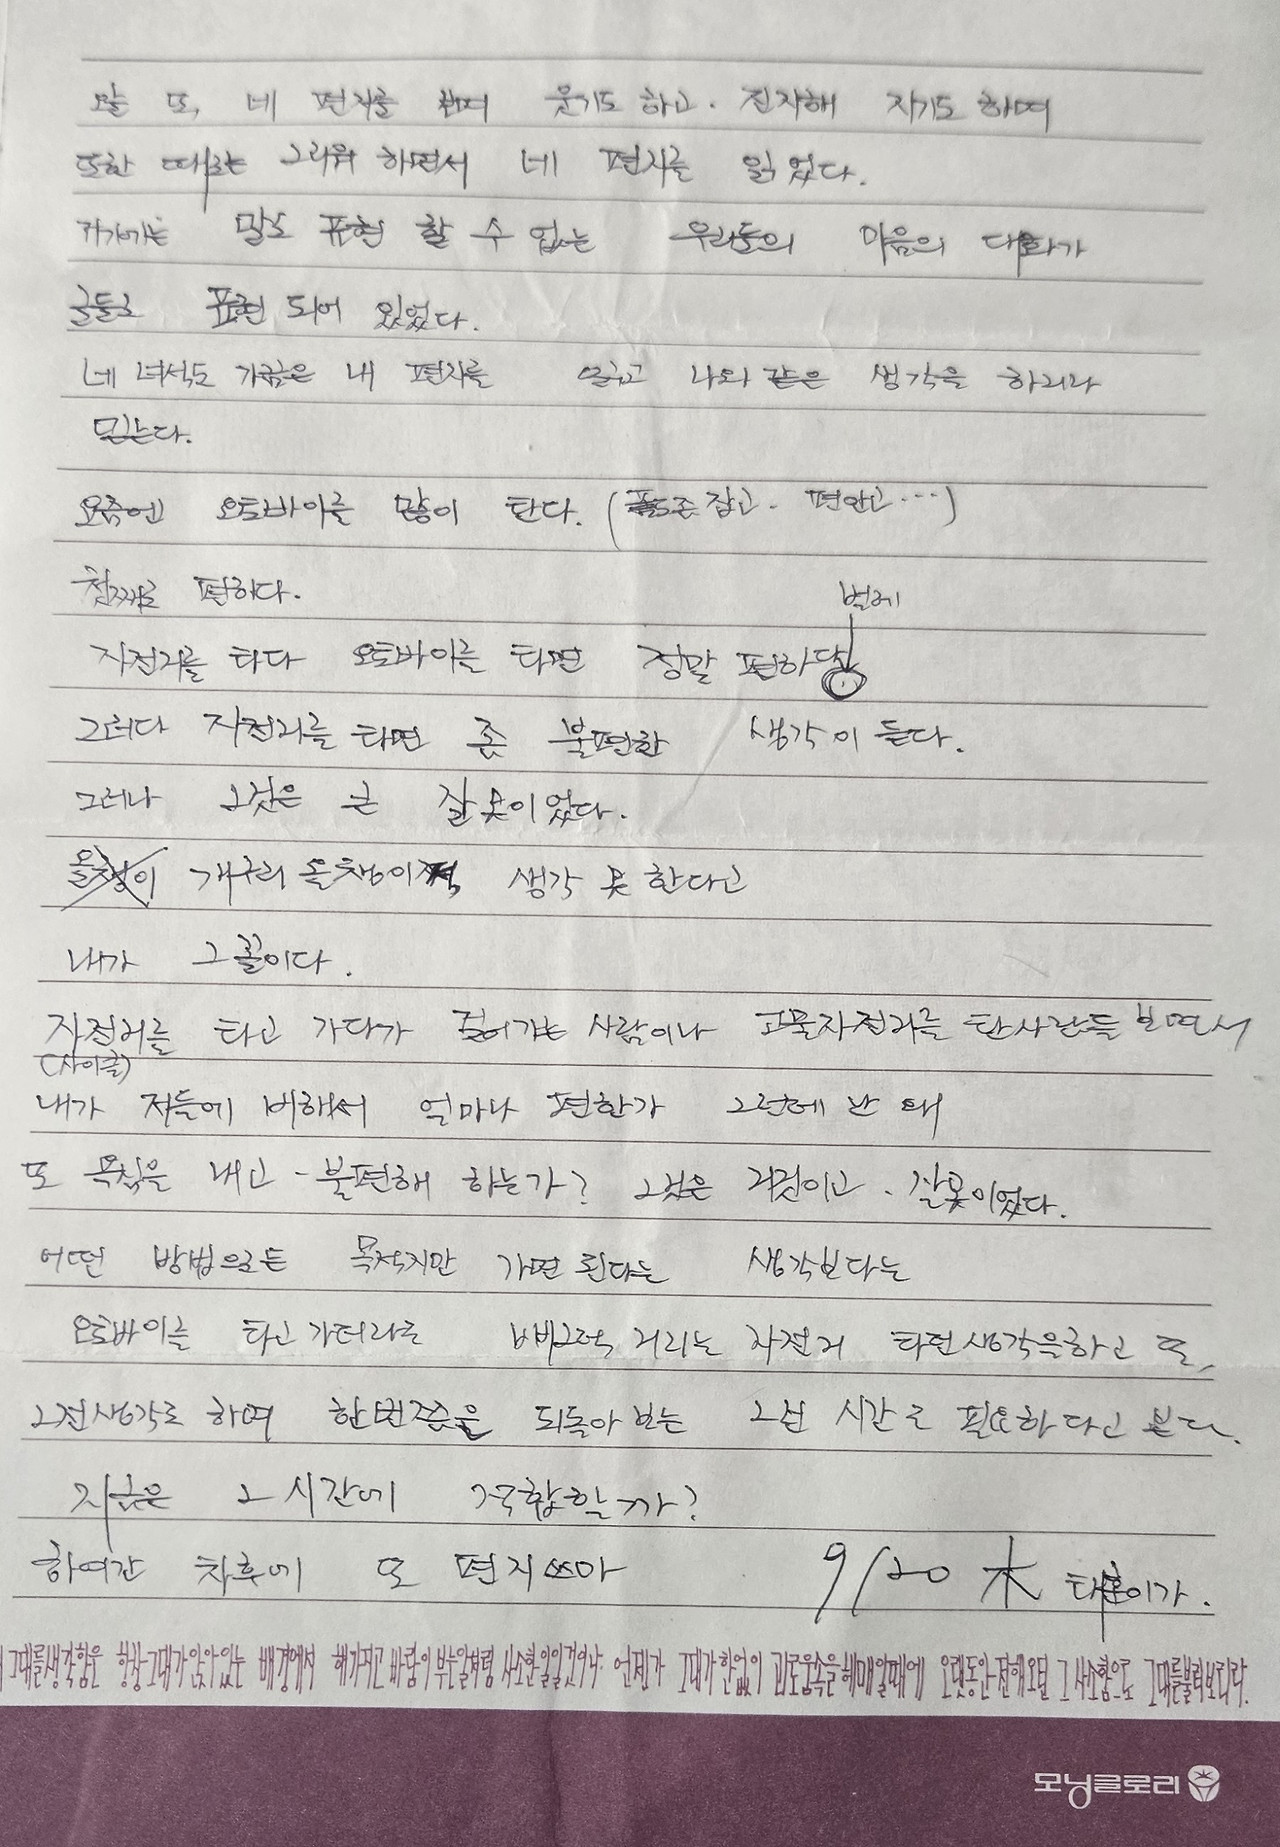 말 또, 네 편지를 보며 웃기도 하고. 진지해 지기도 하며
또한 때로는 그리워 하면서 네 편지를 읽었다.
거기에는 말로 표현 할 수 없는 우리들의 마음의 대화가
글들로 표현 되어 있었다.
네 녀석도 가끔은 내 편지를 읽고 나와 같은 생각을 하리라
믿는다.
요즘엔 오토바이를 많이 탄다. (폼도 잡고. 편안고…)
첫째로 편하다.
벌레
자전거를 타다 오토바이를 타면 정말 편하당
그러다 자전거를 타면 좀 불편한 생각이 든다.
그러나 그것은 큰 잘못이었다.
올챙이 개구리 올챙이적 생각 못 한다고
내가 그 꼴이다.
자전거를 타고 가다가 걸어가는 사람이나 고물자전거를 탄사람들 보면서
(싸이클)
내가 저들에 비해서 얼마나 편한가 그런데 난 왜
또 욕심을 내고 - 불편해 하는가? 그것은 거짓이고. 잘못이었다.
어떤 방법으로든 목적지만 가면 된다는 생각보다는
오토바이를 타고 가더라도 삐그덕 거리는 자전거 타던생각을하고 또,
그전생각도 하며 한번쯤을 되돌아 보는 그런 시간도 필요하다고 본다.
지금은 그 시간에 적합할까?
하여간 차후에 또 편지쓰마 9/20 木 태훈이가.
그대를생각함은 항상그대가앉아있는 배경에서 해가지고바람이부는일처럼 사소한일일것이나 언젠가 그대가한없이 괴로움속을헤매일때에 오랫동안전해오던 그사소함으로 그대를불러보리라.
모닝글로리